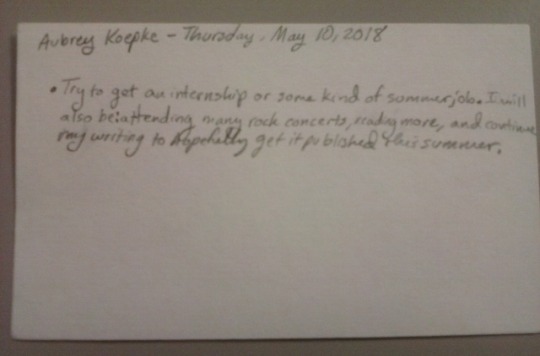 Aubrey Koepke - Thursday, May 10, 2018
• Try to get an internship or some kind of summer job. I will
also be attending many rock concerts, reading more, and continue
my writing to hopefully get it published this summer.